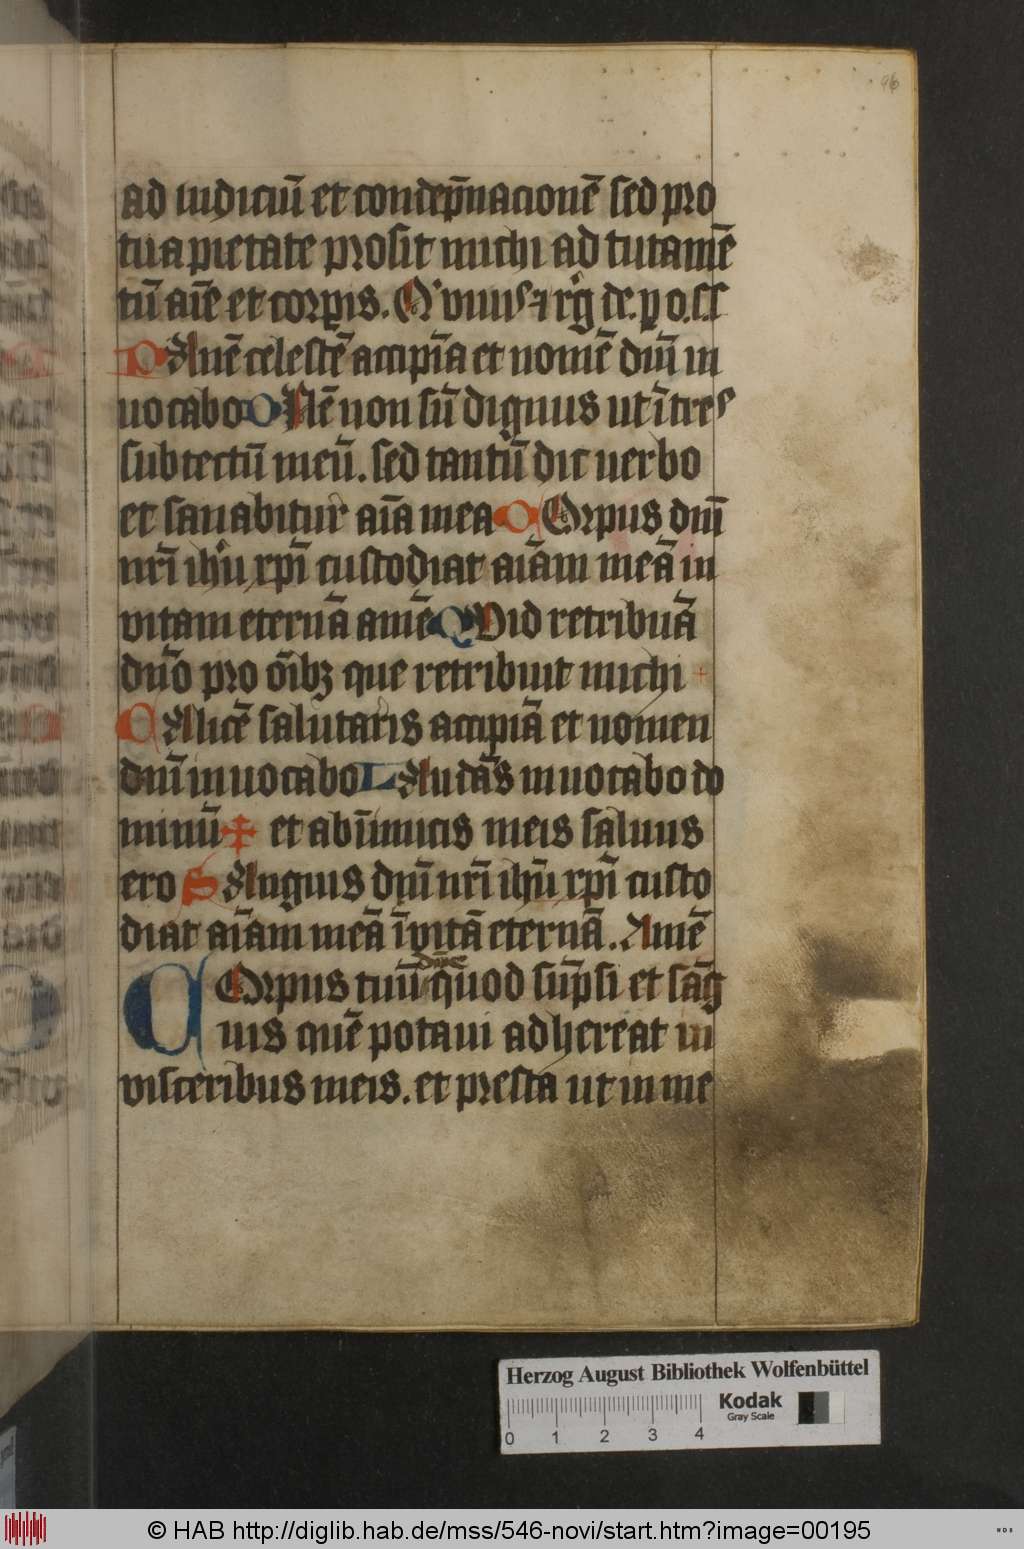 96
ad iudiciū et condēpnacionē sed pro
tua pietate prosit michi ad tutamē
tū aīe et corpis. Q' viuis
PAnē celestē accipīa et nomē dnī in
uocabo DNē non sū dignus ut ītres
sub tectū meū. sed tantū dic uerbo
et sanabitur aīa mea COrpus dnī
nrī ihū xpī custodiat aīam meā in
vitam eternā amē QVid retribuā
dn̄o pro oībꝫ que retribuit michi +
CAlicē salutaris accipiā et nomen
dnī inuocabo LAudās inuocabo do
minū ‡ et ab īnimicis meis saluus
ero SAnguis dnī nrī ihū xpī custo
diat aīam meā ī vitā eternā. Amē
COrpus tuū dn̄e quod sūpsi et sāg
uis quē potaui adhereat in
visceribus meis. et presta ut in me
Herzog August Bibliothek Wolfenbüttel
0 1 2 3 4
Kodak
Gray Scale
© HAB http://diglib.hab.de/mss/546-novi/start.htm?image=00195